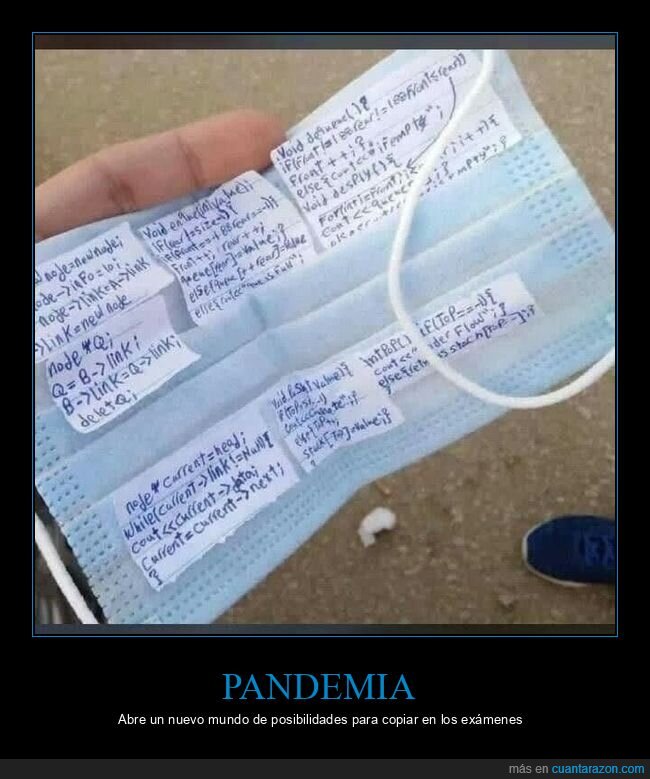 Void dequeue(){
if(Front!=-1&&rear!=-1&&Front<=rear)
Front++;}
else{cout<<"if empty";
Void desplay(){
For(int i=Front;i<=
cout<<queue
Void enqueue(int value){
if(rear!=size-1){
if(Front==-1&&rear==-1){
Front++;
queue[rear]=value;}
else{cout<<"queue is Full";
node=newnode;
node->info=10;
node->link=A->link
->link=new node
node *Q;
Q=B->link;
B->link=Q->link;
delet Q;
int POP() if(ToP==-1){
cout<<"under Flow";}
else{return stack[ToP--];}
Void Push( value){
stack[ToP]=value;}
}
node *current=head;
while(current->link!=Null){
cout<<current->data;
current=current->next;
}
PANDEMIA
Abre un nuevo mundo de posibilidades para copiar en los exámenes
más en cuantarazon.com